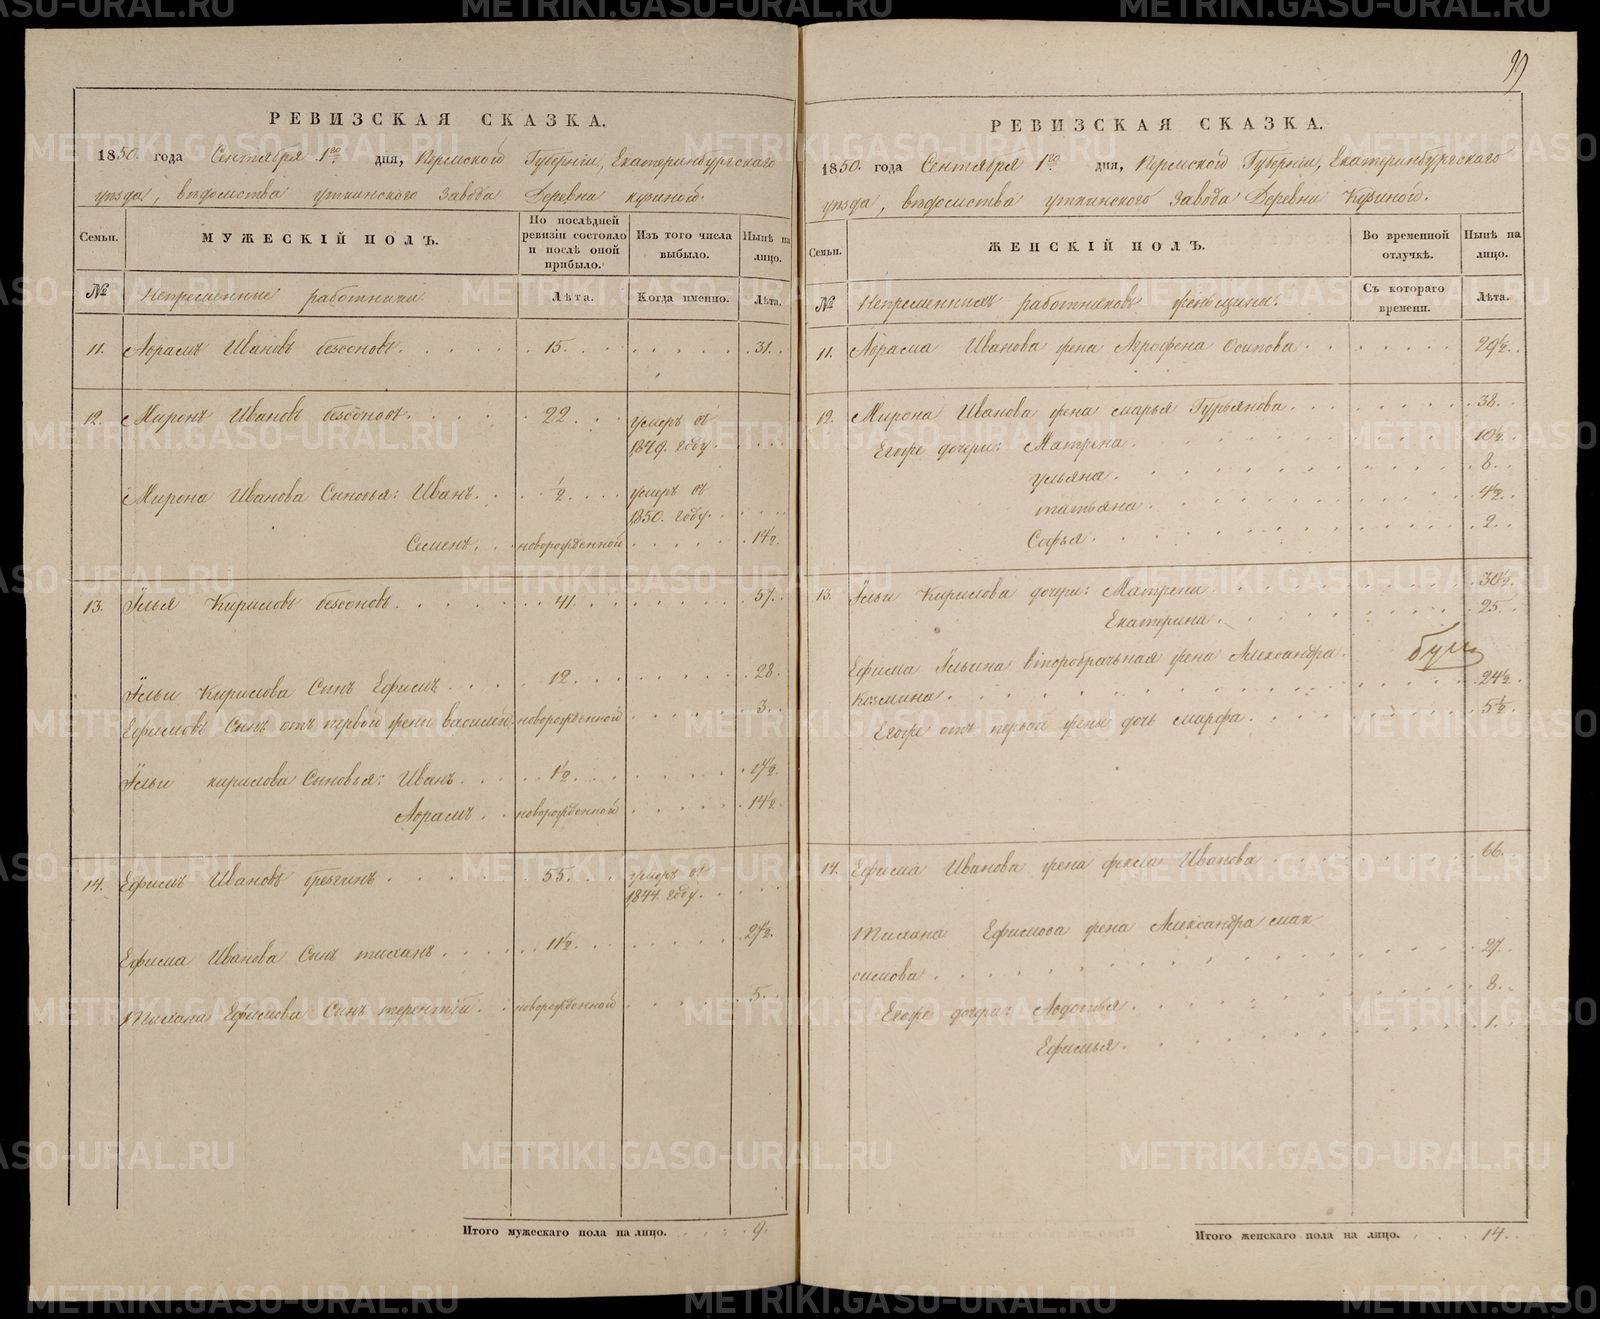 99
РЕВИЗСКАЯ СКАЗКА.
1850. года Сентября 1го дня, Пермской Губернии, Екатеринбургскаго
уезда, ведомства уткинского завода Деревни кузиной.
Семьи. МУЖЕСКІЙ ПОЛЪ. По послѣдней ревизіи состояло и послѣ оной прибыло. Изъ того числа выбыло. Нынѣ на лицо.
№ Непременные работники. Лѣта. Когда именно. Лѣта.
11. Абрамъ Ивановъ безсоновъ. 15. 31.
12. Миронъ Ивановъ безсоновъ. 22. умеръ въ
1849. году.
Мирона Иванова Сыновья: Иванъ. ½ умеръ въ
1850. году.
Семенъ. новорожденной 14½
13. Илья Кириловъ безсоновъ. 41. 57.
Ильи Кирилова Сынъ Ефимъ. 12. 28.
Ефимовъ Сынъ отъ первой жены василий новорожденной 3.
Ильи кирилова Сыновья: Иванъ. 1½. 17½.
Абрамъ. новорожденной 14½
14. Ефимъ Ивановъ 55. умеръ въ
1844. году.
Ефима Иванова Сынъ тиханъ. 11½. 27½.
Тихана Ефимова Сынъ терентий. новорожденной 5.
Итого мужескаго пола на лицо. 9.
РЕВИЗСКАЯ СКАЗКА.
1850. года Сентября 1го дня, Пермской Губернии, Екатеринбургскаго
уезда, ведомства уткинского завода Деревни Кузиной.
Семьи. ЖЕНСКІЙ ПОЛЪ. Во временной отлучкѣ. Нынѣ на лицо.
№ Непременныхъ работниковъ женьщины. Съ котораго времени. Лѣта.
11. Абрама Иванова жена Агрофена Осипова. 29½.
12. Мирона Иванова жена марья Гурьянова. 38.
Егоже дочери: Матрена. 10½.
ульяна. 8.
татьяна. 4½.
Софья. 2.
13. Ильи Кирилова дочери: Матрена. 30½.
Екатерина. 25.
Ефима Ильина второбрачьная жена Александра
Козмина. 24½.
Егоже отъ первой жены дочь марфа. 5½.
14. Ефима Иванова жена фекла Иванова 66.
Тихана Ефимова жена Александра мак
симова. 27.
Егоже дочери: Авдотья. 8.
Ефимья. 1.
Итого женскаго пола на лицо. 14.
METRIKI.GASO-URAL.RU